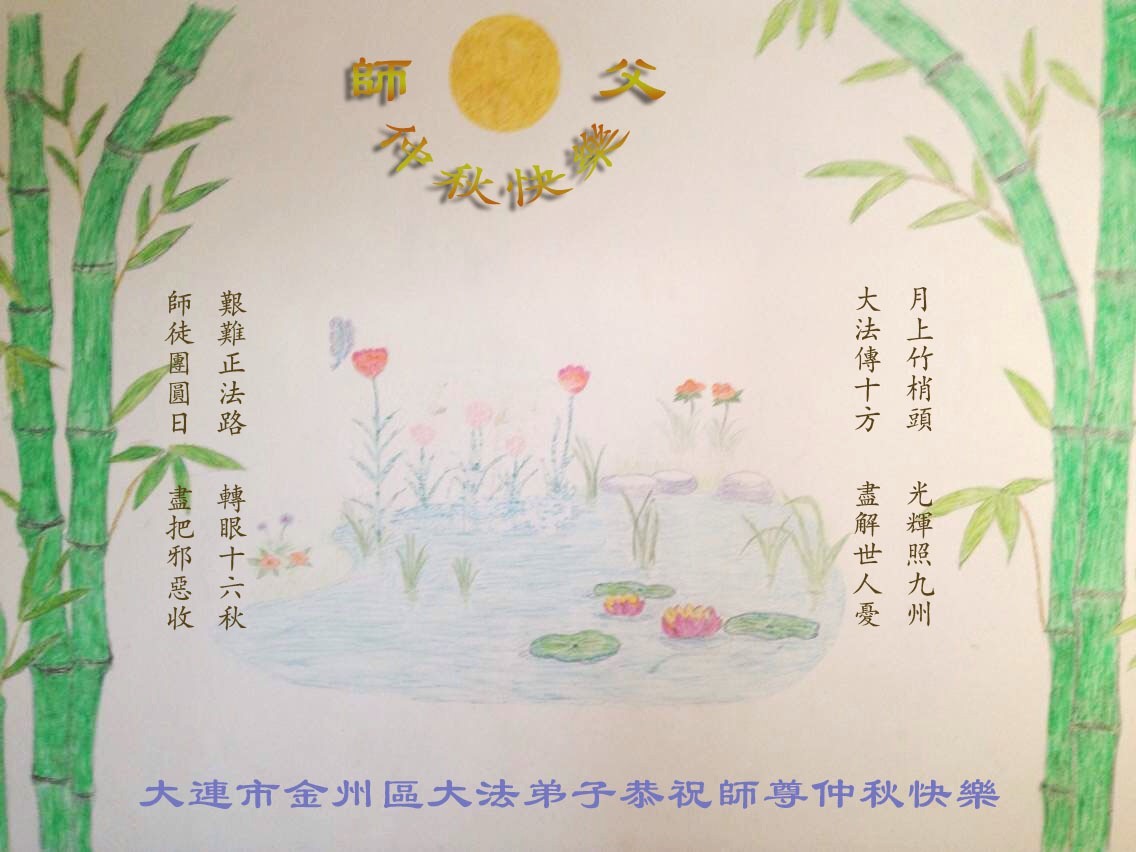 師 父
仲秋快樂
月上竹梢頭 光輝照九州
大法傳十方 盡解世人憂
艱難正法路 轉眼十六秋
師徒團圓日 盡把邪惡收
大連市金州區大法弟子恭祝師尊仲秋快樂